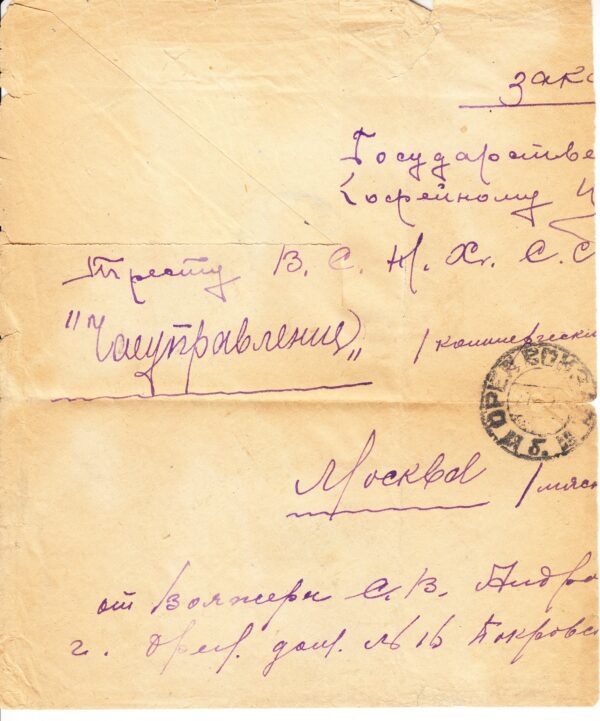 зака
Государстве
Кофейному Ч
Тресту В. С. Н. Х. С. С
"Чаеуправление"
/коммерчески
Москва /мясн
от Вояжера С. В. Андро
г. дом. № 16 Покровс